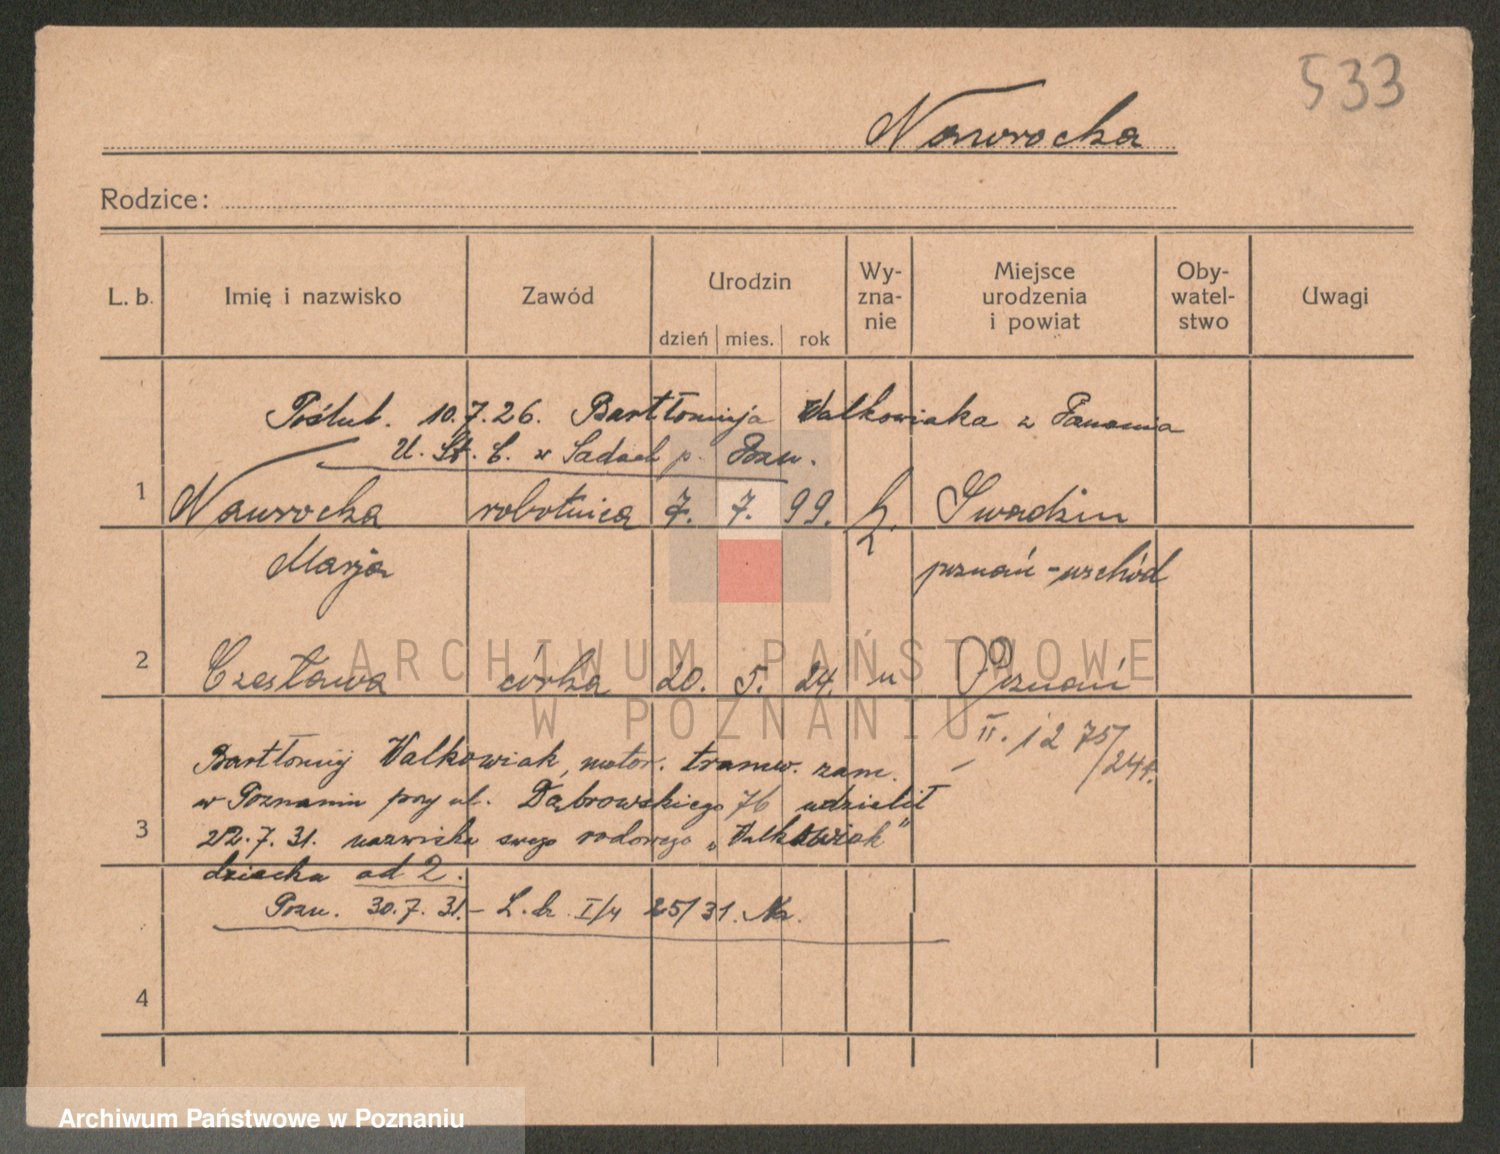 533
Nawrocka
Rodzice:
L. b. Imię i nazwisko Zawód Urodzin dzień mies. rok Wy-zna-nie Miejsce urodzenia i powiat Oby-watel-stwo Uwagi
Poślub. 10.7.26. Bartłomieja Walkowiaka z
U. St. C. w Sadach p. Pozn.
1 Nawrocka robotnica 7. 7. 99. Swadzim
Marja poznań-wschód
ARCHIWUM PAŃSTWOWE
2 Czesława córka 20. 5. 24. Poznań
W POZNANIU
II. 1275/24
Bartłomiej Walkowiak, motor. tramw. zam.
w Poznaniu przy ul. Dąbrowskiego 76 udzielił
3 22.7.31. nazwiska swego rodowego „Walkowiak"
dziecku od 2.
Pozn. 30.7.31.- L. dz. I/4 25/31. Na.
4
Archiwum Państwowe w Poznaniu